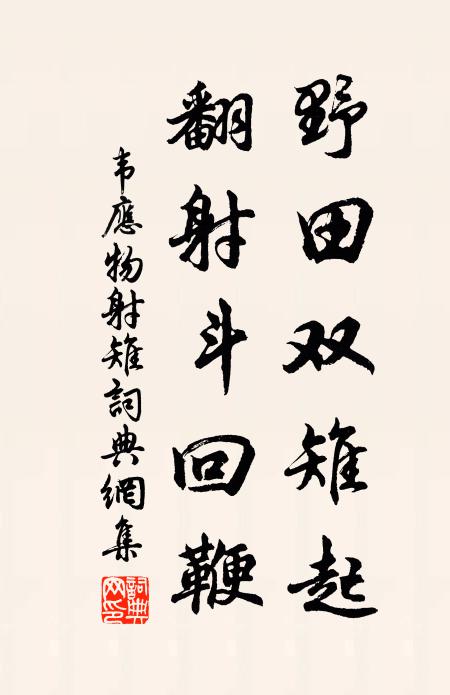 野田双雉起
翻射斗回鞭
韦應物射雉詞典網集
詞典網印